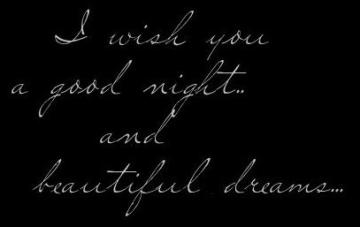 I wish you
a good night..
and
beautiful dreams...